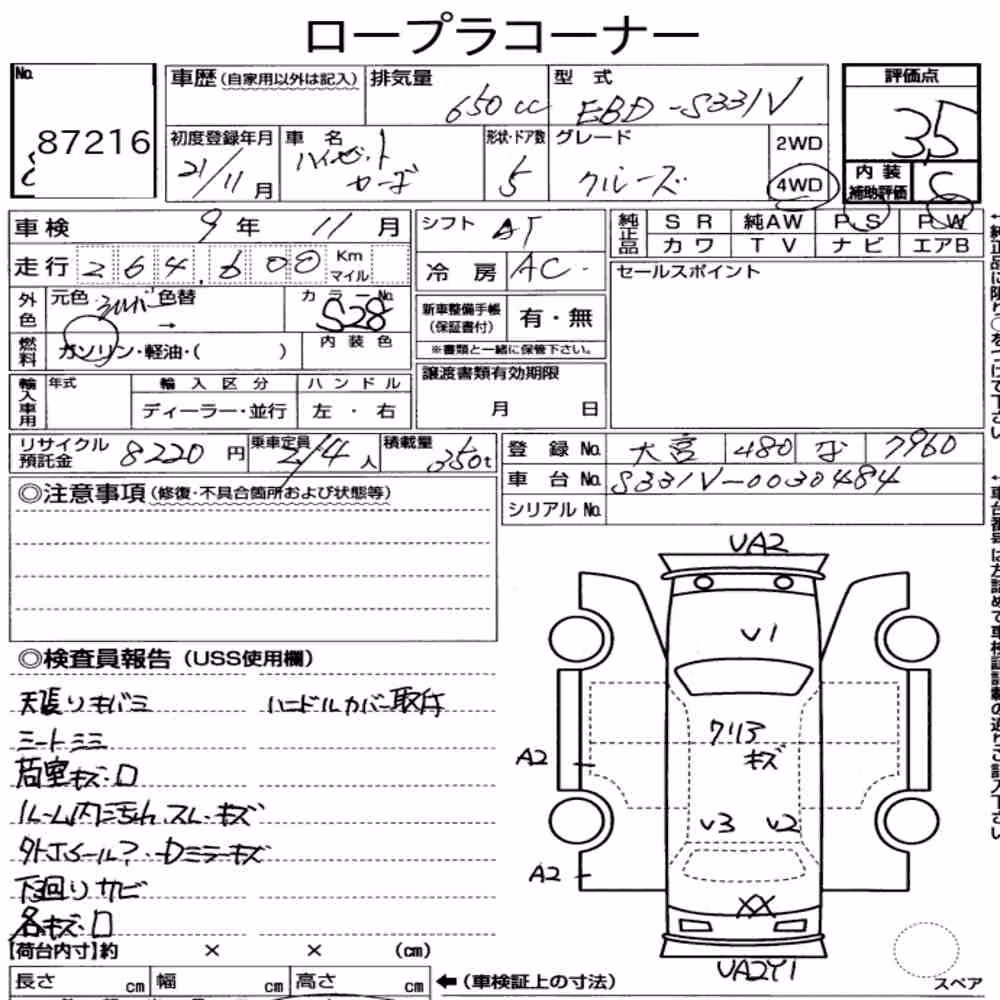 ロープラコーナー
No.
87216
車歴(自家用以外は記入)
排気量
650cc
型式
EBD-S331V
評価点
3.5
初度登録年月
21/11月
車名
ハイゼットカーゴ
形状・ドア数
5
グレード
クルーズ
2WD
4WD
内装
補助評価
C
車検 9年 11月
走行 264,600 Km
マイル
外色
元色 シルバー 色替
→
カラーNo.
S28
燃料
ガソリン・軽油・( )
内装色
輸入車用
年式
輸入区分
ディーラー・並行
ハンドル
左・右
シフト AT
冷房 AC
新車整備手帳
(保証書付)
有・無
※書類と一緒に保管下さい。
譲渡書類有効期限
月 日
純正品
SR 純AW PS PW
カワ TV ナビ エアB
セールスポイント
リサイクル預託金 8220円
乗車定員 2/4人
積載量 350t
登録No. 大宮 480 な 7960
車台No. S331V-0030484
シリアルNo.
◎注意事項(修復・不具合箇所および状態等)
◎検査員報告(USS使用欄)
天張りキバミ
ハンドルカバー取付
シートシミ
荷室キズ・
ルーム内ごちれ、スレ・キズ
下回りサビ
各キズ・
UA2
U1
クリア
キズ
A2
U3 U2
A2
XX
UA2Y1
スペア
【荷台内寸】約 × × (cm)
長さ cm 幅 cm 高さ cm
←(車検証上の寸法)
←純正品に限り○をつけて下さい